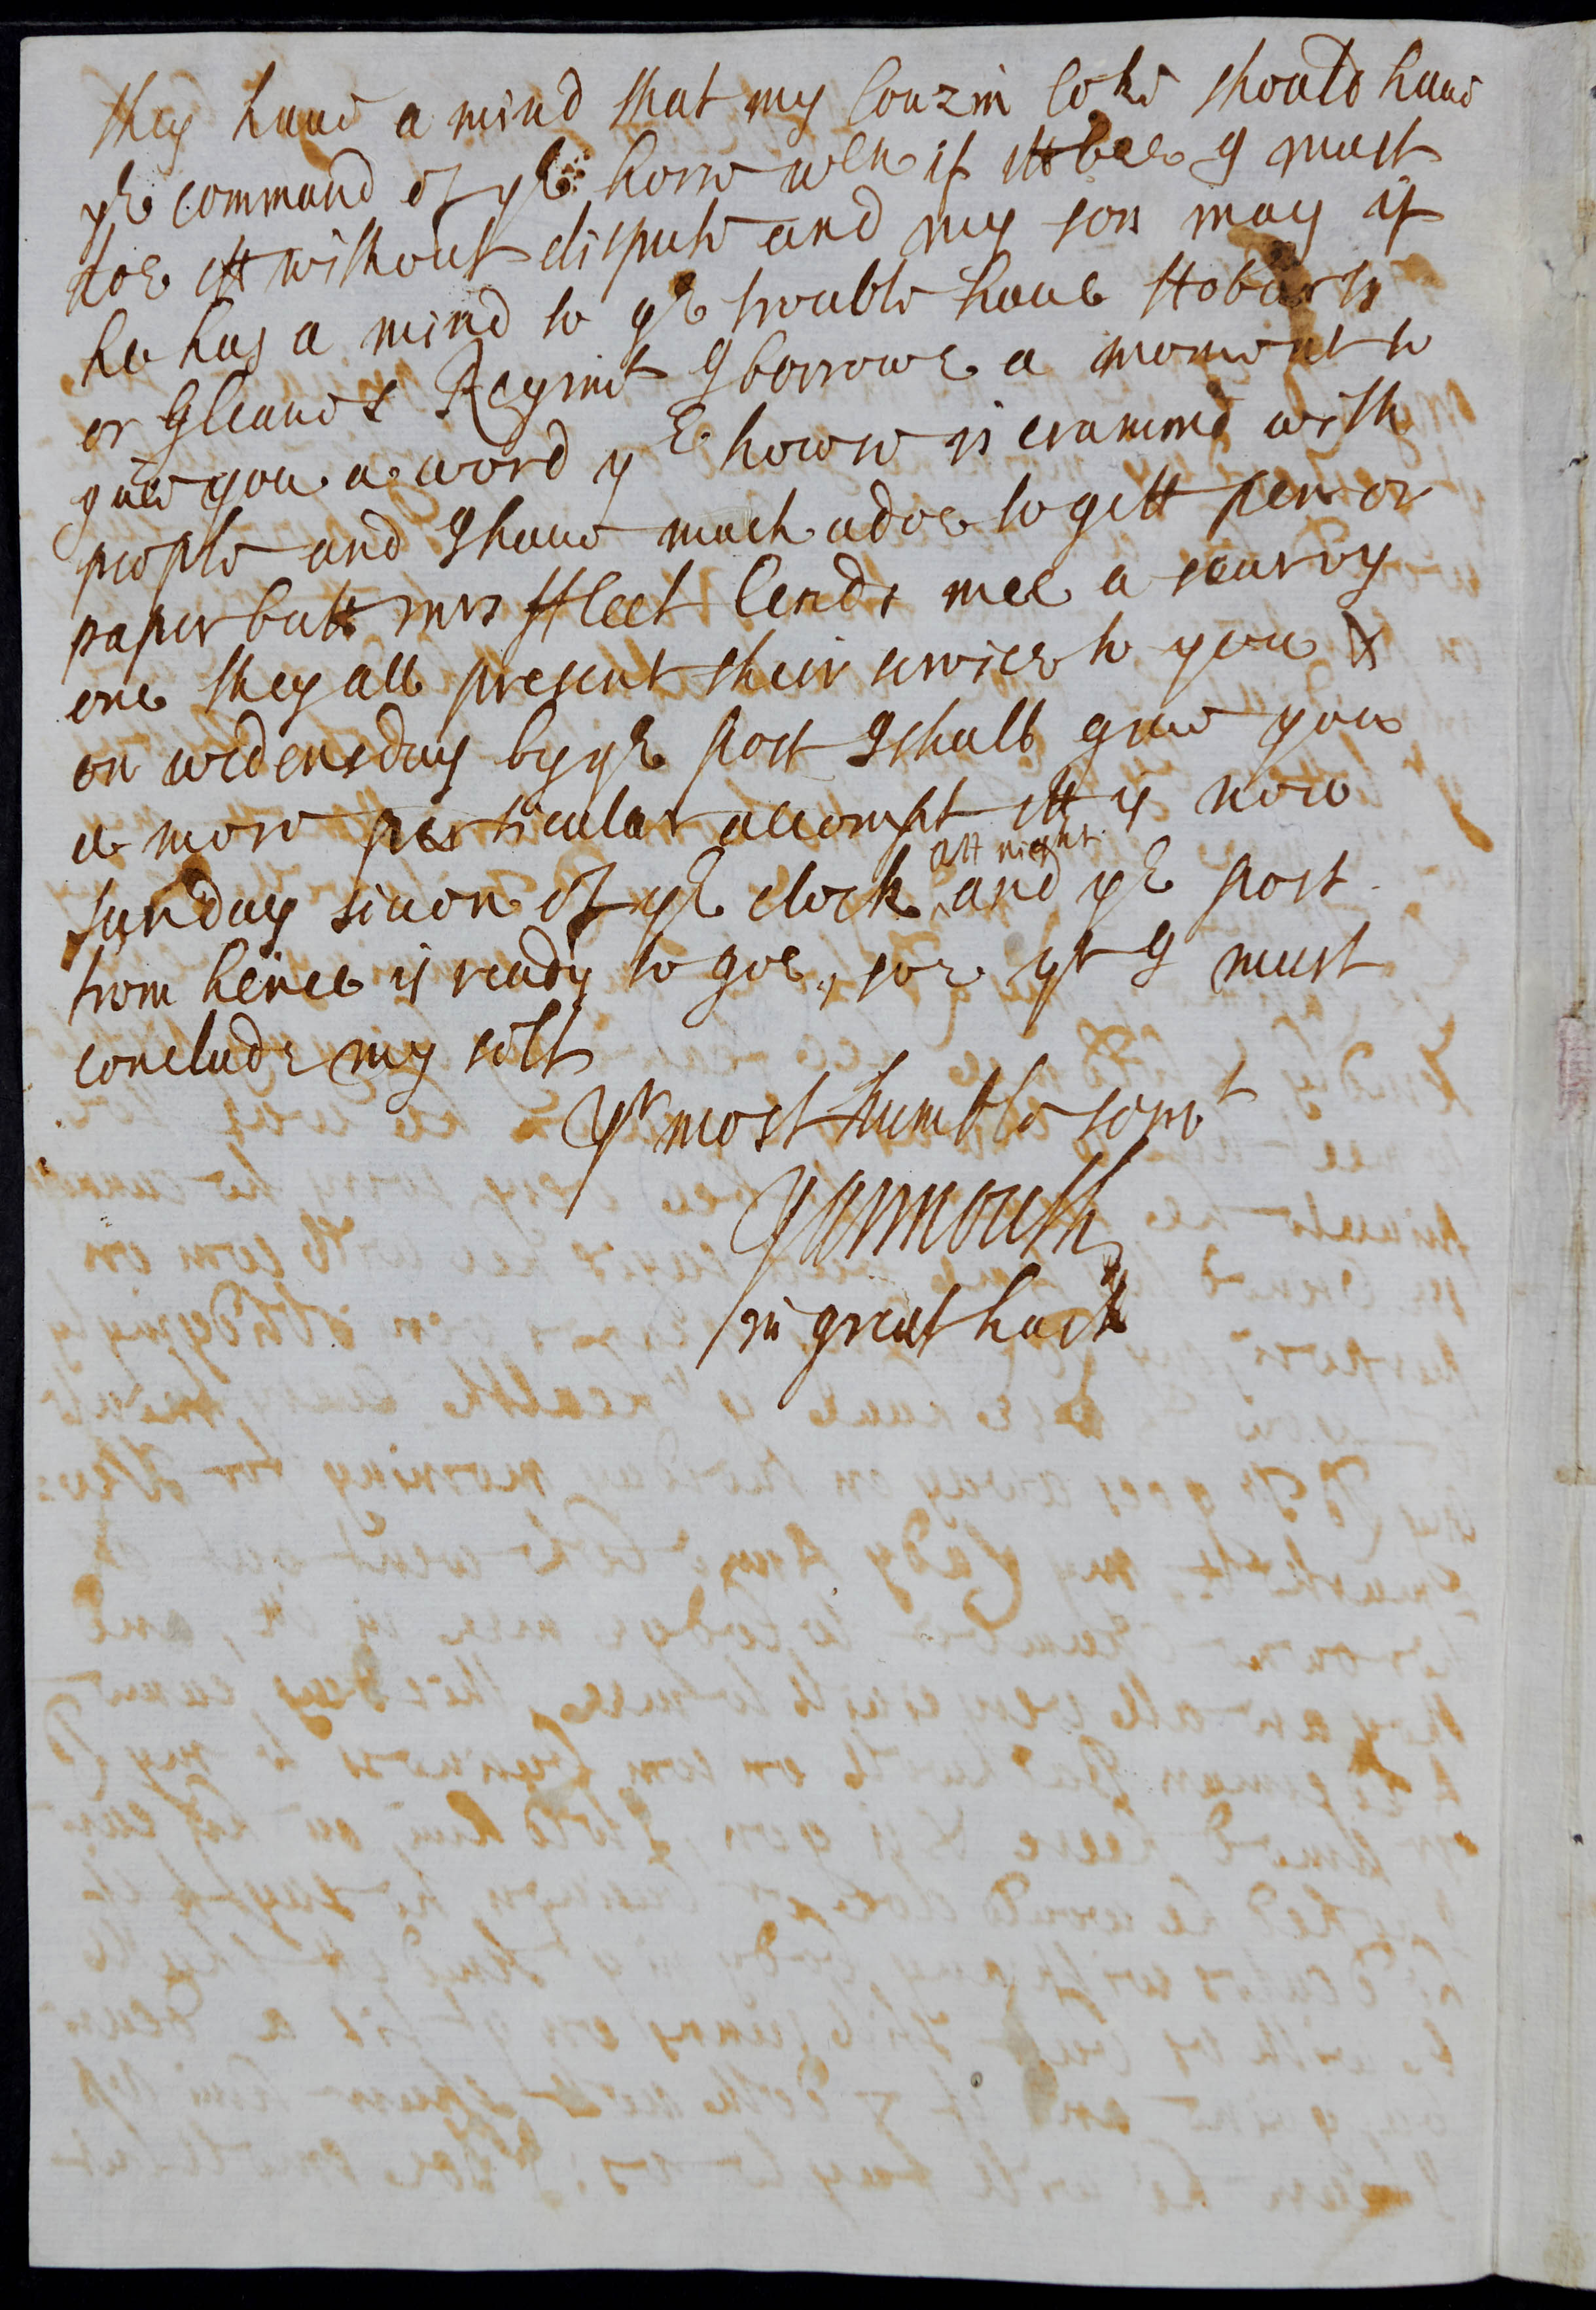 they haue a mind that my Couzin Coke should haue
ye command of ye horse wch if itt bee I must
doe itt without dispute and my son may if
he has a mind to ye trouble haue Hobarts
or Gleanes Regimt I borrowe a moment to
giue you a word ye howse is crammd with
people and I haue much adoe to gett pen or
paper butt mrs ffleet lends mee a scurvy
one they all present their service to you &
on wedensday by ye post I shall giue you
a more perticular accompt itt is now
sunday seauen of ye clock att night and ye post
from hence is ready to goe, soe yt I must
conclude my self
Yr most humble servt
Yarmouth
in great hast